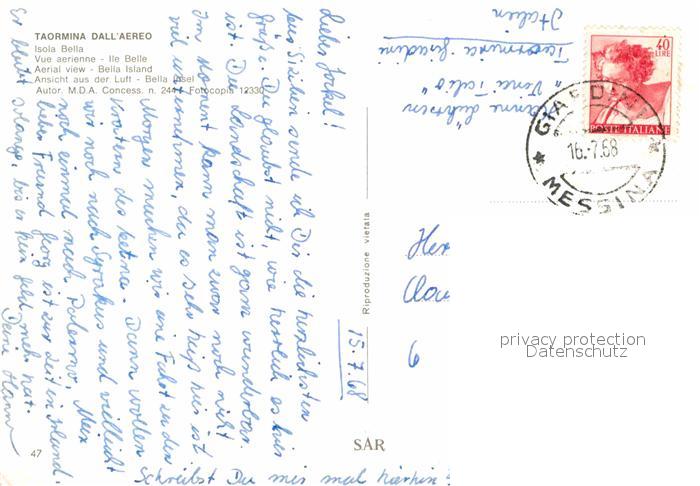 TAORMINA DALL'AEREO
Isola Bella
Vue aerienne - Ile Belle
Aerial view - Bella Island
Ansicht aus der Luft - Bella Insel
Autor. M.D.A. Concess. n. 244 Fotocopis 12330
Riproduzione vietata
SAR
47
15.7.68
Lieber
aus Sizilien sende ich Dir die herzlichsten
Grüße. Du glaubst nicht, wie herrlich es hier
ist. Die Landschaft ist ganz wunderbar.
Im Moment kann man zwar noch nicht
viel unternehmen, da es sehr heiß hier ist
Morgen machen wir eine Fahrt zu den
Kratern des Aetna. Dann wollen
wir noch nach Syrakus und vielleicht
noch einmal nach Palermo. Mein
lieber Freund Georg ist zur Zeit in
Er bleibt solange, bis er kein Geld mehr hat.
Deine
Schreibst Du mir mal hierhin
Taormina Giardini
Italien
40
LIRE
POSTE ITALIANE
GIARDINI
16.-7.68
MESSINA
Her
Clau
6
privacy protection
Datenschutz